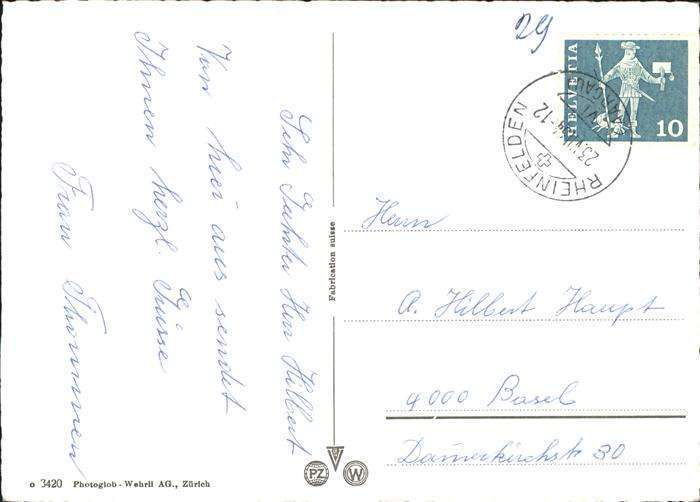 29
HELVETIA
10
RHEINFELDEN
Sehr Geehrter Herr Hilbert
Von hier aus sendet
Ihnen herzl. Grüsse
Frau Thommen
Fabrication suisse
Herrn
A. Hilbert Haupt
4000 Basel
Dammerkirchstr 30
o 3420 Photoglob - Wehrli AG., Zürich
PZ
W